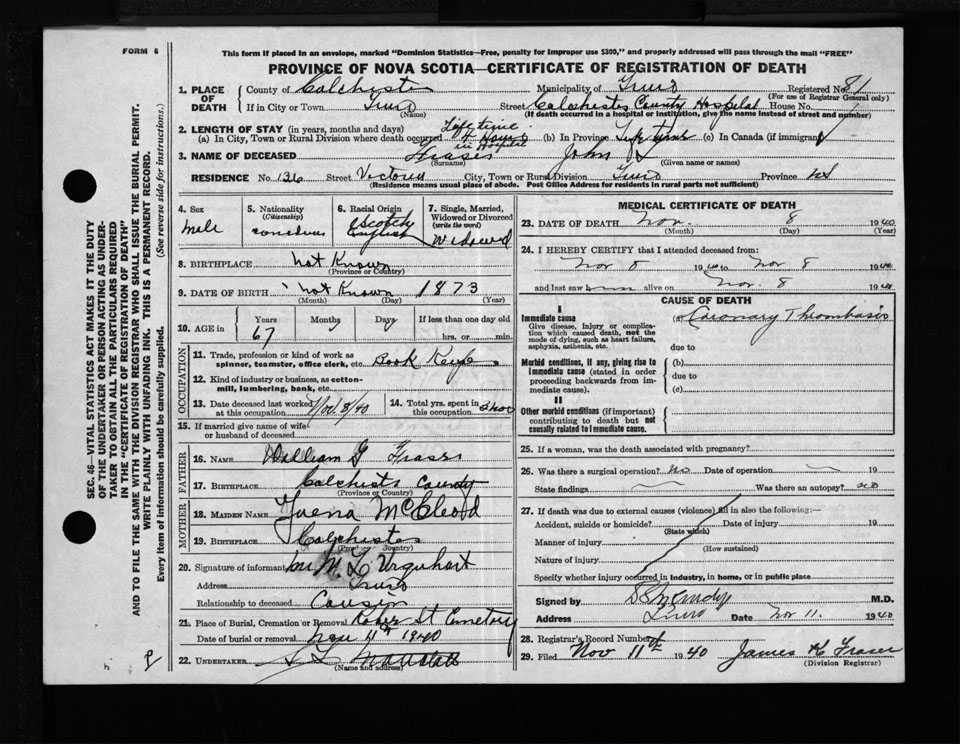 FORM 6
This form if placed in an envelope, marked "Dominion Statistics—Free, penalty for improper use $300," and properly addressed will pass through the mail "FREE"
PROVINCE OF NOVA SCOTIA—CERTIFICATE OF REGISTRATION OF DEATH
1. PLACE OF DEATH
County of Colchester Municipality of Truro Registered No. 81
(For use of Registrar General only)
If in City or Town Truro Street Colchester County Hospital House No.
(Name) (If death occurred in a hospital or institution, give the name instead of street and number)
2. LENGTH OF STAY (in years, months and days) Life time
(a) In City, Town or Rural Division where death occurred in Hospital (b) In Province Life time (c) In Canada (if immigrant)
3. NAME OF DECEASED Fraser John
(Surname) (Given name or names)
RESIDENCE No. 136 Street Victoria City, Town or Rural Division Truro Province NS
(Residence means usual place of abode. Post Office Address for residents in rural parts not sufficient)
4. Sex
male
5. Nationality
(Citizenship)
6. Racial Origin
Scotch
English
7. Single, Married, Widowed or Divorced
(write the word)
Widowed
8. BIRTHPLACE not Known
(Province or Country)
9. DATE OF BIRTH not Known 1873
(Month) (Day) (Year)
10. AGE in Years Months Days If less than one day old
67 hrs. or min.
OCCUPATION
11. Trade, profession or kind of work as spinner, teamster, office clerk, etc. Book Keeper
12. Kind of industry or business, as cotton-mill, lumbering, bank, etc.
13. Date deceased last worked at this occupation Nov 8/40
14. Total yrs. spent in this occupation
15. If married give name of wife or husband of deceased
FATHER
16. NAME William G Fraser
17. BIRTHPLACE Colchester County
(Province or Country)
MOTHER
18. MAIDEN NAME McCleod
19. BIRTHPLACE Colchester
(Province or Country)
20. Signature of informant M. L Urquhart
Address Truro
Relationship to deceased Cousin
21. Place of Burial, Cremation or Removal St Cemetery
Date of burial or removal Nov 11th 1940
22. UNDERTAKER
(Name and address)
MEDICAL CERTIFICATE OF DEATH
23. DATE OF DEATH Nov. 8 1940
(Month) (Day) (Year)
24. I HEREBY CERTIFY that I attended deceased from:
Nov 8 1940 to Nov 8 1940
and last saw alive on Nov. 8 1940
CAUSE OF DEATH
I
Immediate cause
Give disease, injury or complication which caused death, not the mode of dying, such as heart failure, asphyxia, asthenia, etc.
(a) Coronary Thrombosis
due to
Morbid conditions, if any, giving rise to immediate cause (stated in order proceeding backwards from immediate cause).
(b)
due to
(c)
II
Other morbid conditions (if important) contributing to death but not causally related to immediate cause.
25. If a woman, was the death associated with pregnancy?
26. Was there a surgical operation? no Date of operation 19
State findings Was there an autopsy? no
27. If death was due to external causes (violence) fill in also the following:—
Accident, suicide or homicide? Date of injury 19
(State which)
Manner of injury
(How sustained)
Nature of injury
Specify whether injury occurred in industry, in home, or in public place
Signed by M.D.
Address Truro Date Nov 11. 1940
28. Registrar's Record Number
29. Filed Nov 11th 1940 James K Fraser
(Division Registrar)
SEC. 46—VITAL STATISTICS ACT MAKES IT THE DUTY
OF THE UNDERTAKER OR PERSON ACTING AS UNDER-
TAKER TO OBTAIN ALL THE PARTICULARS REQUIRED
IN THE "CERTIFICATE OF REGISTRATION OF DEATH"
AND TO FILE THE SAME WITH THE DIVISION REGISTRAR WHO SHALL ISSUE THE BURIAL PERMIT.
WRITE PLAINLY WITH UNFADING INK. THIS IS A PERMANENT RECORD.
Every item of information should be carefully supplied. (See reverse side for instructions.)